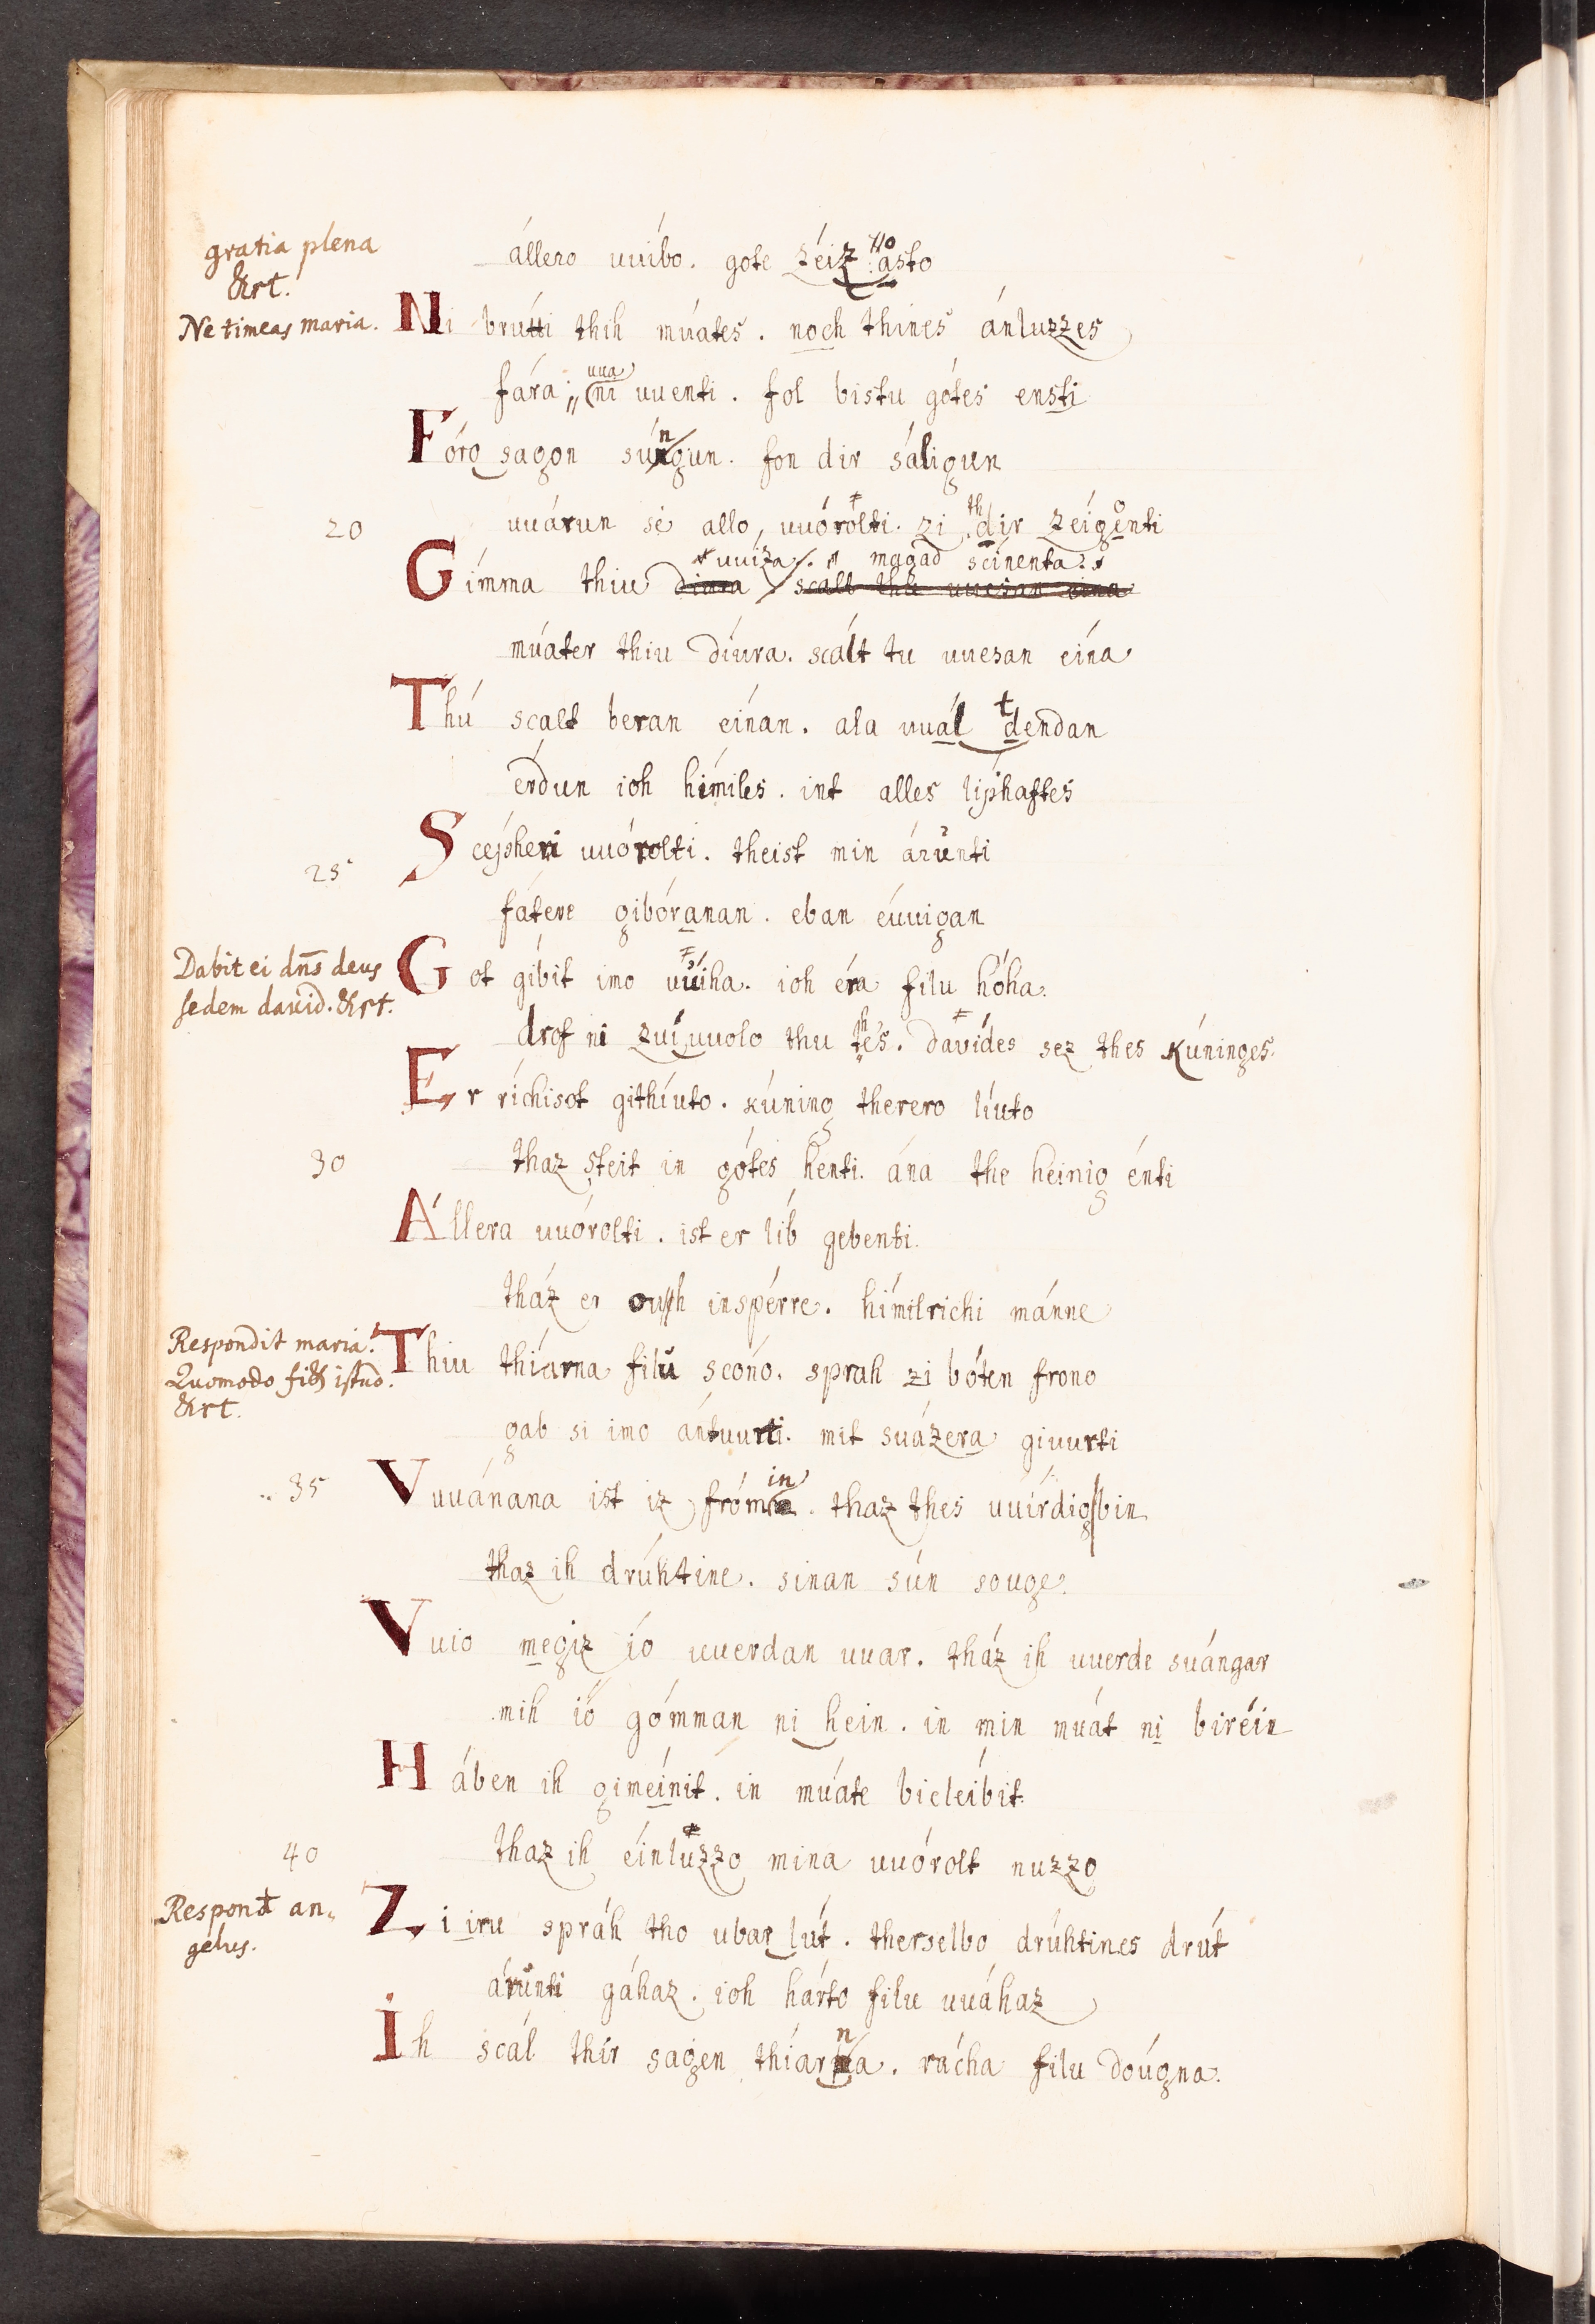 gratia plena
&rt.
állero uuíbo. gote zéiz no asto
Ne timeas maria.
Ni brutti thih múates. noch thines ánluzzes
fára; uua ni uuenti. fol bistu gótes ensti
Fórosagon súngun. fon dir sáligun
20
uuárun sé allo, uuórolti. zi th dir zeigonti
uuiza. magad scínenta.
Gímma thiu diura. scalt thu uuesan eina
múater thiu díura. scált tu uuesan eína
Thú scalt beran eínan. ala uuál t dendan
érdun ioh hímiles. int alles líphaftes
25
Scépheri uuórolti. theist min árunti
fátere gibóranan. eban éuuigan
Dabit ei dns deus
sedem dauid. &rt.
Got gíbit imo uuiha. ioh éra filu hóha.
drof ni zuíuuolo thu thes. dauídes sez thes kúninges.
Er ríchisot githíuto. kúning therero líuto
30
thaz steit in gótes henti. ána theheinig énti
Állera uuórolti. ist er líb gebenti.
tház er ouh inspérre. hímilrichi mánne
Respondit maria.
Quomodo fi& istud.
&rt.
Thiu thíarna filu scóno. sprah zi bóten frono
gab si imo ántuurti. mit suázera giuurti
35
Vuuánana ist iz frómin. thaz thes uuírdig bin
thaz ih drúhtine. sinan sún souge.
Vuio megiz ío uuerdan uuar. tház ih uuerde suángar
mih io gómman nihein. in min muát ni biréin
Hában ih giméinit. in múate bicleíbit.
40
thaz ih éinluzzo mina uuórolt nuzzo
Respondt an,,
gelus.
Zi iru spráh tho ubarlút. therselbo drúhtines drút
árunti gáhaz. ioh hárto filu uuáhaz
Ih scál thir sagen thíarna. rácha filu dóugna.